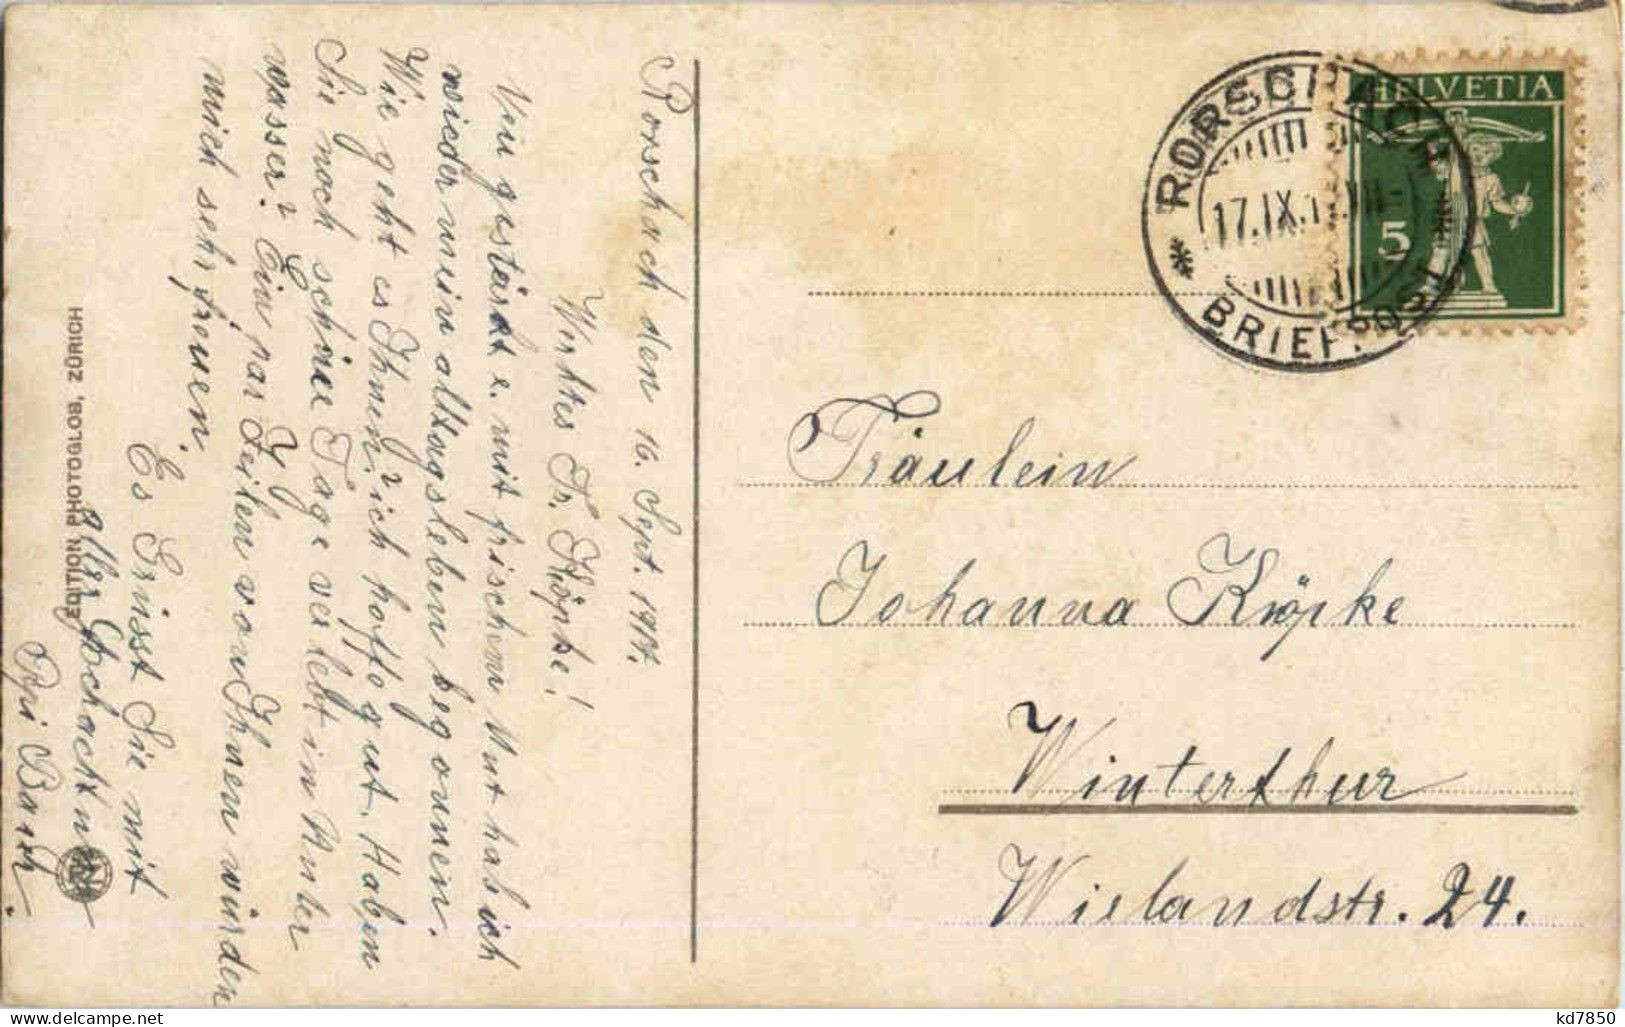 Rorschach den 16. Sept. 1917.
Wertes Fr. Köpke!
Neu gestärkt u. mit frischem Mut hab ich
wieder mein alltagsleben begonnen.
Wie geht es Ihnen? ich hoffe gut. Haben
Sie noch schöne Tage verlebt in Unter
wasser? Ein par Zeilen von Ihnen würden
mich sehr freuen.
Es Grüsst Sie mit
aller Hochachtung
Barth.
EDITION PHOTOGLOB, ZÜRICH
HELVETIA
5
RORSCHACH
17.IX.
BRIEFPOST
Fräulein
Johanna Köpke
Winterthur
Wielandstr. 24.
kd7850